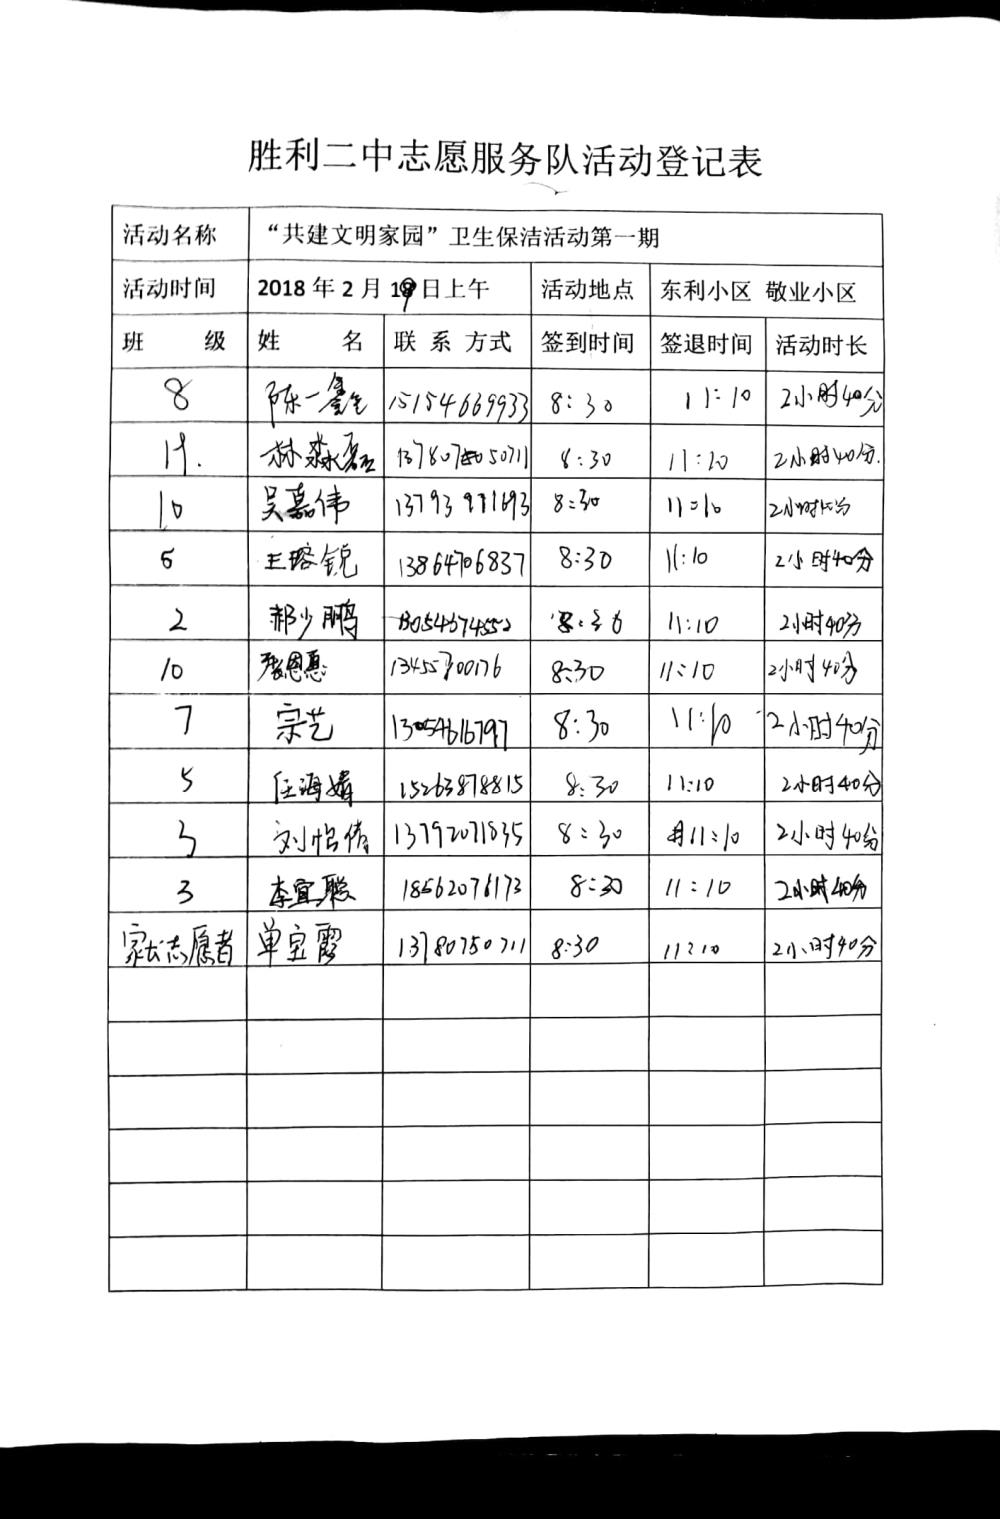 胜利二中志愿服务队活动登记表
活动名称 “共建文明家园”卫生保洁活动第一期
活动时间 2018 年 2 月 19 日上午 活动地点 东利小区 敬业小区
班 级 姓 名 联 系 方式 签到时间 签退时间 活动时长
8 陈一鑫 15154669933 8:30 11:10 2小时40分
11. 林淼磊 8:30 11:10 2小时40分.
10 吴嘉伟 8:30 11:10 2小时40分
6 王瑢锐 13864706837 8:30 11:10 2小时40分
2 郝少鹏 13054674552 8:30 11:10 2小时40分
10 张恩惠 13455700176 8:30 11:10 2小时40分
7 宗艺 13054616797 8:30 11:10 2小时40分
5 任海婧 15263878815 8:30 11:10 2小时40分
3 刘怡倩 13792071835 8:30 11:10 2小时40分
3 李宜聪 18562076173 8:30 11:10 2小时40分
家长志愿者 单宝霞 13780750711 8:30 11:10 2小时40分